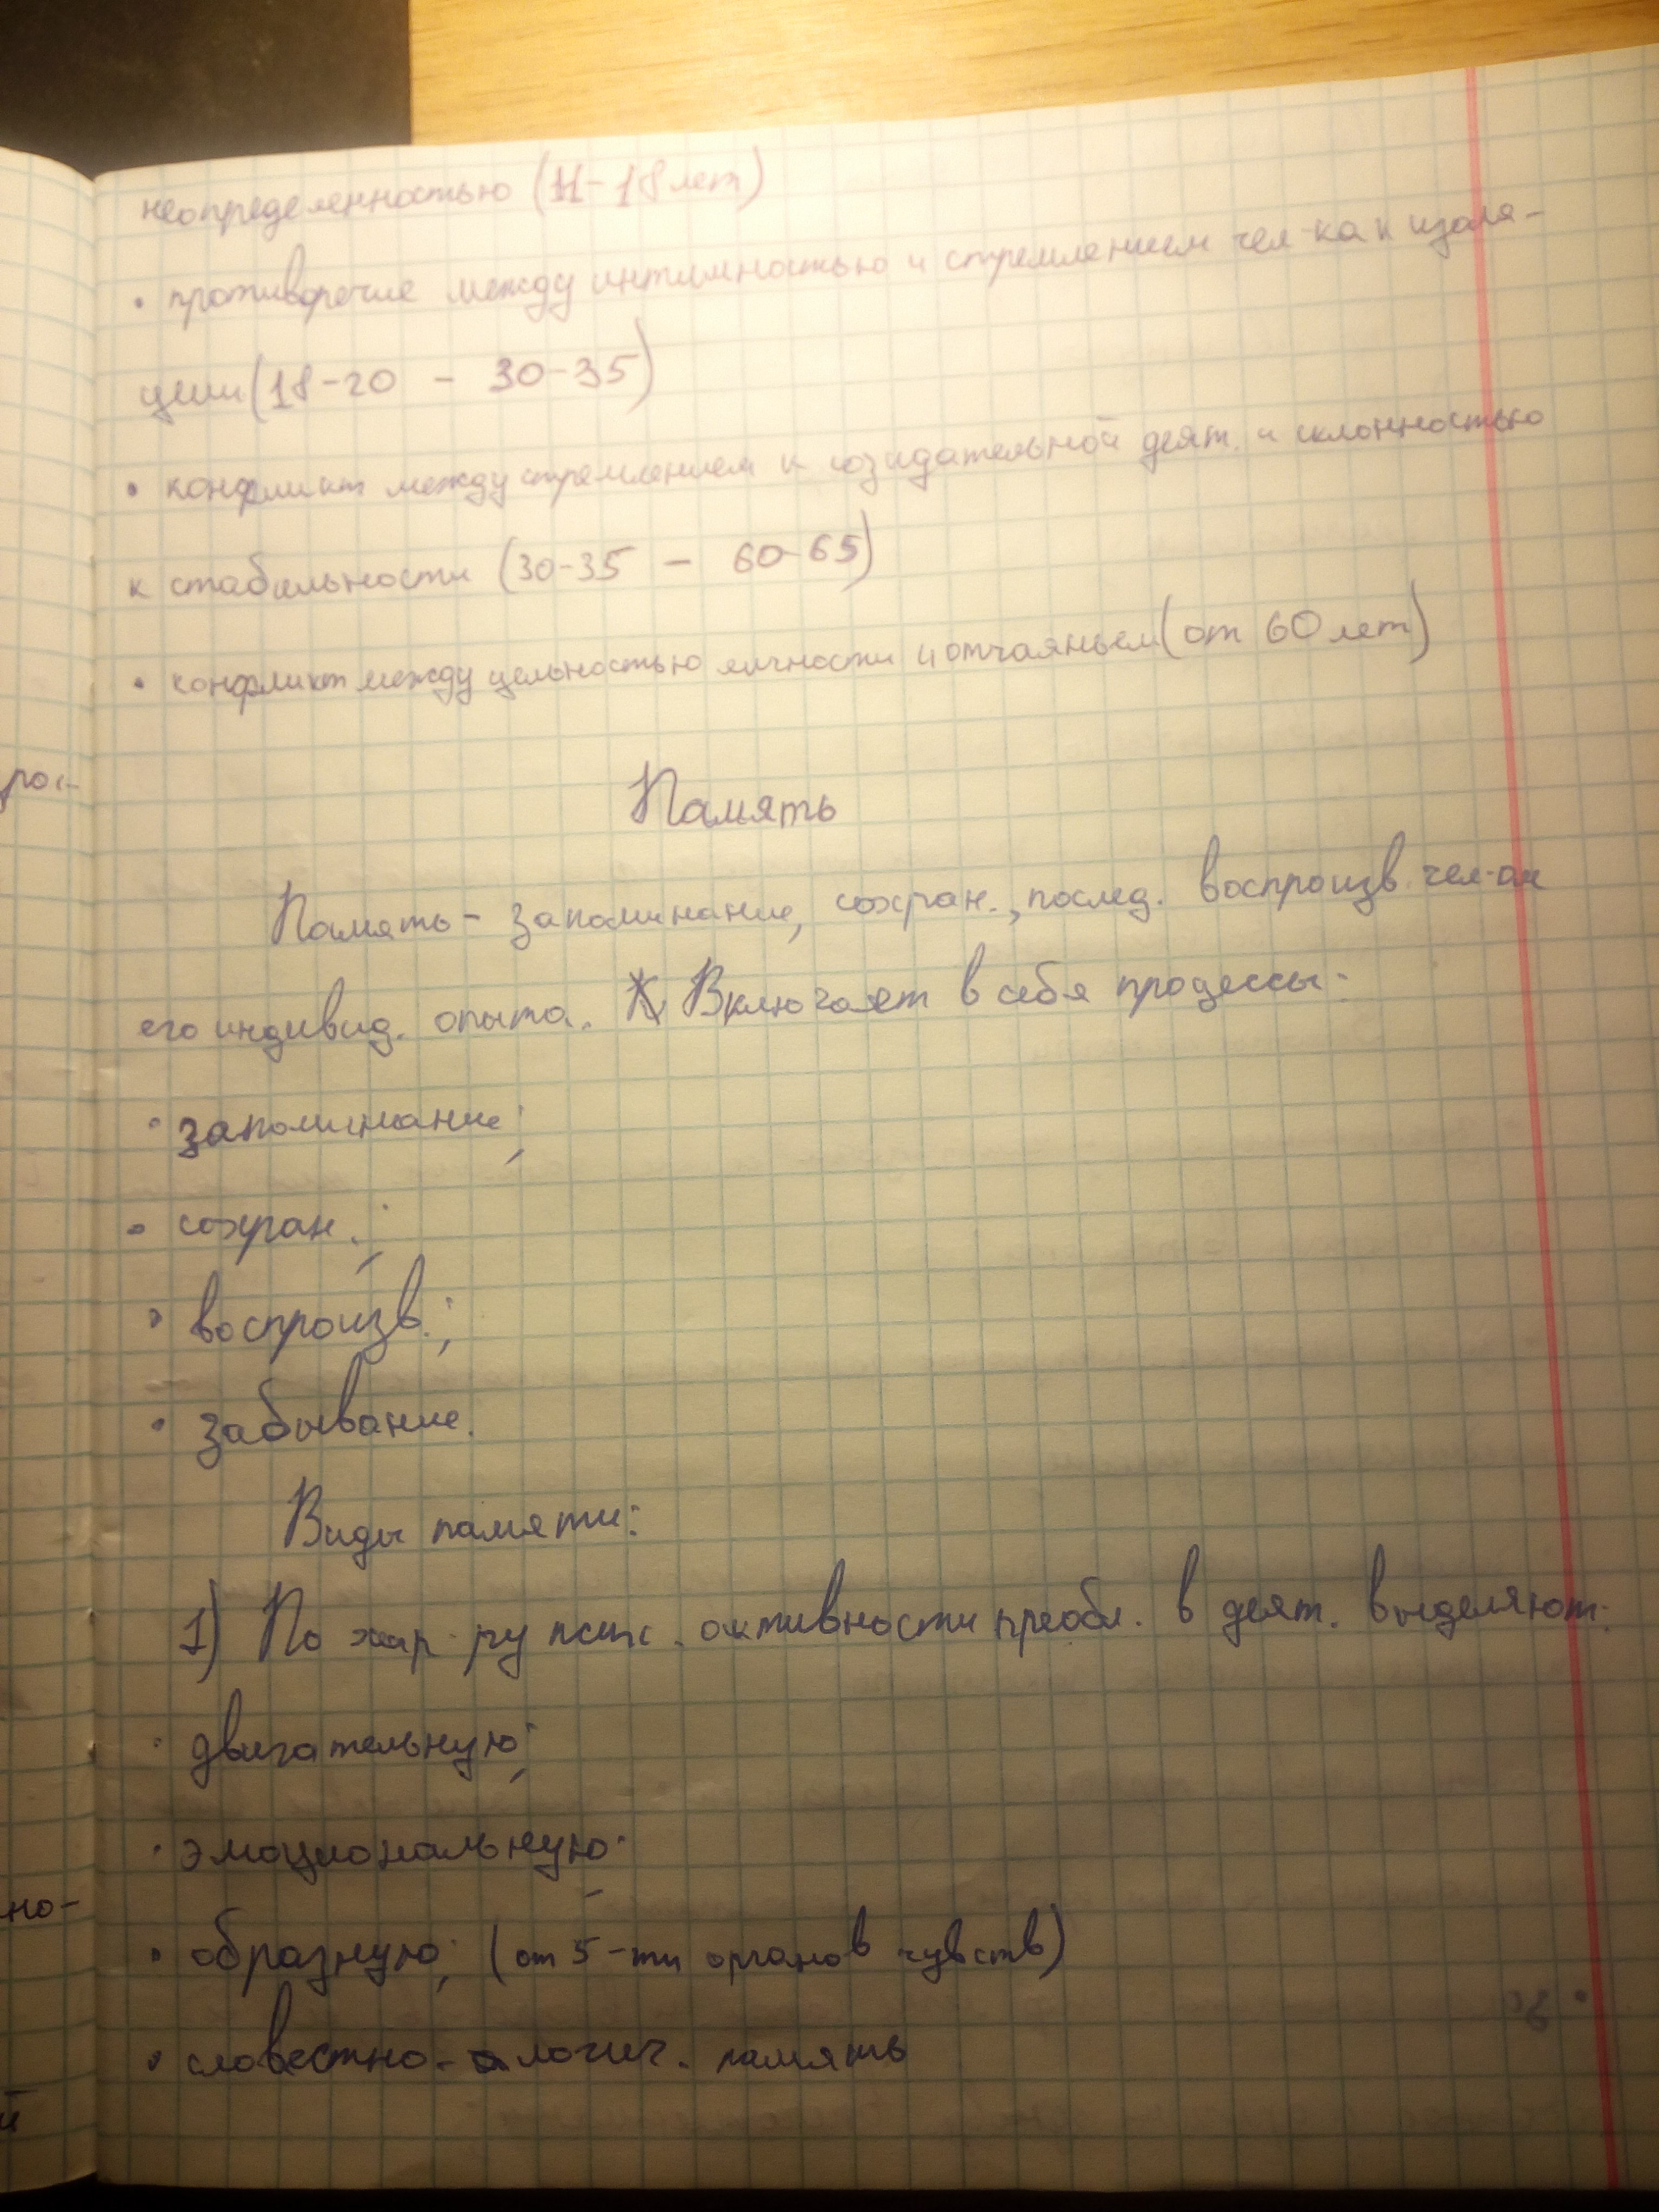 неопределенностью (11-18 лет)
• противоречие между интимностью и стремлением чел-ка к изоля-
ции (18-20 - 30-35)
• конфликт между стремлением к созидательной деят. и склонностью
к стабильности (30-35 - 60-65)
• конфликт между цельностью личности и отчаяньем (от 60 лет)
Память
Память - запоминание, сохран., послед. воспроизв. чел-ом
его индивид. опыта. Включает в себя процессы:
• запоминание;
• сохран.;
• воспроизв.;
• забывание.
Виды памяти:
1) По хар-ру псих. активности преобл. в деят. выделяют:
• двигательную;
• эмоциональную;
• образную; (от 5-ти органов чувств)
• словестно-логич. память
рос-
но-
й